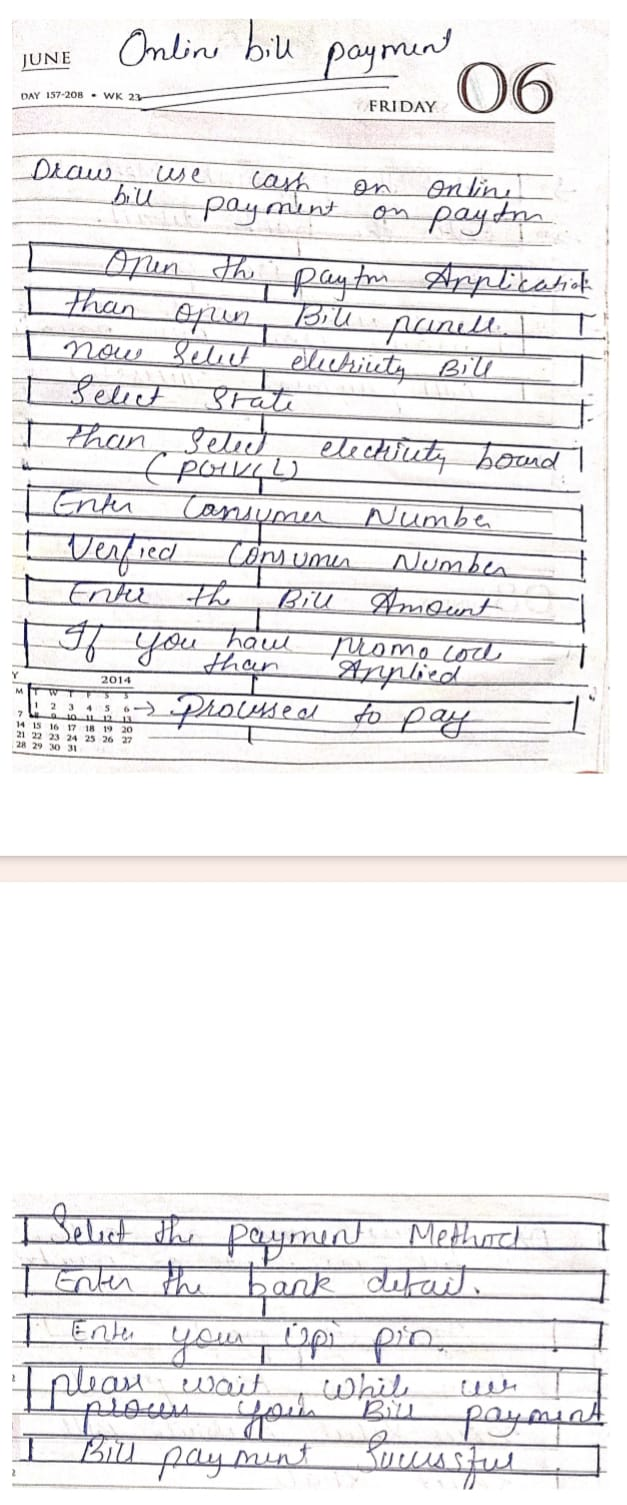 Online bill payment
JUNE
06
DAY 157-208 • WK 23
FRIDAY
Draw use cash on online
bill payment on paytm
Open the paytm Application
than open Bill panell.
now Select electricity Bill
Select State
than Select electricity board
Enter Consumer Number
Verfied Consumer Number
Enter the Bill Amount
If you have promo code
than Applied
2014
M T W T F S S
1 2 3 4 5 6
7 8 9 10 11 12 13
14 15 16 17 18 19 20
21 22 23 24 25 26 27
28 29 30 31
→ Proussed to pay
Select the payment Method
Enter the bank detail.
Enter your Upi pin.
please wait while we
process your Bill payment
Bill payment Sucussful